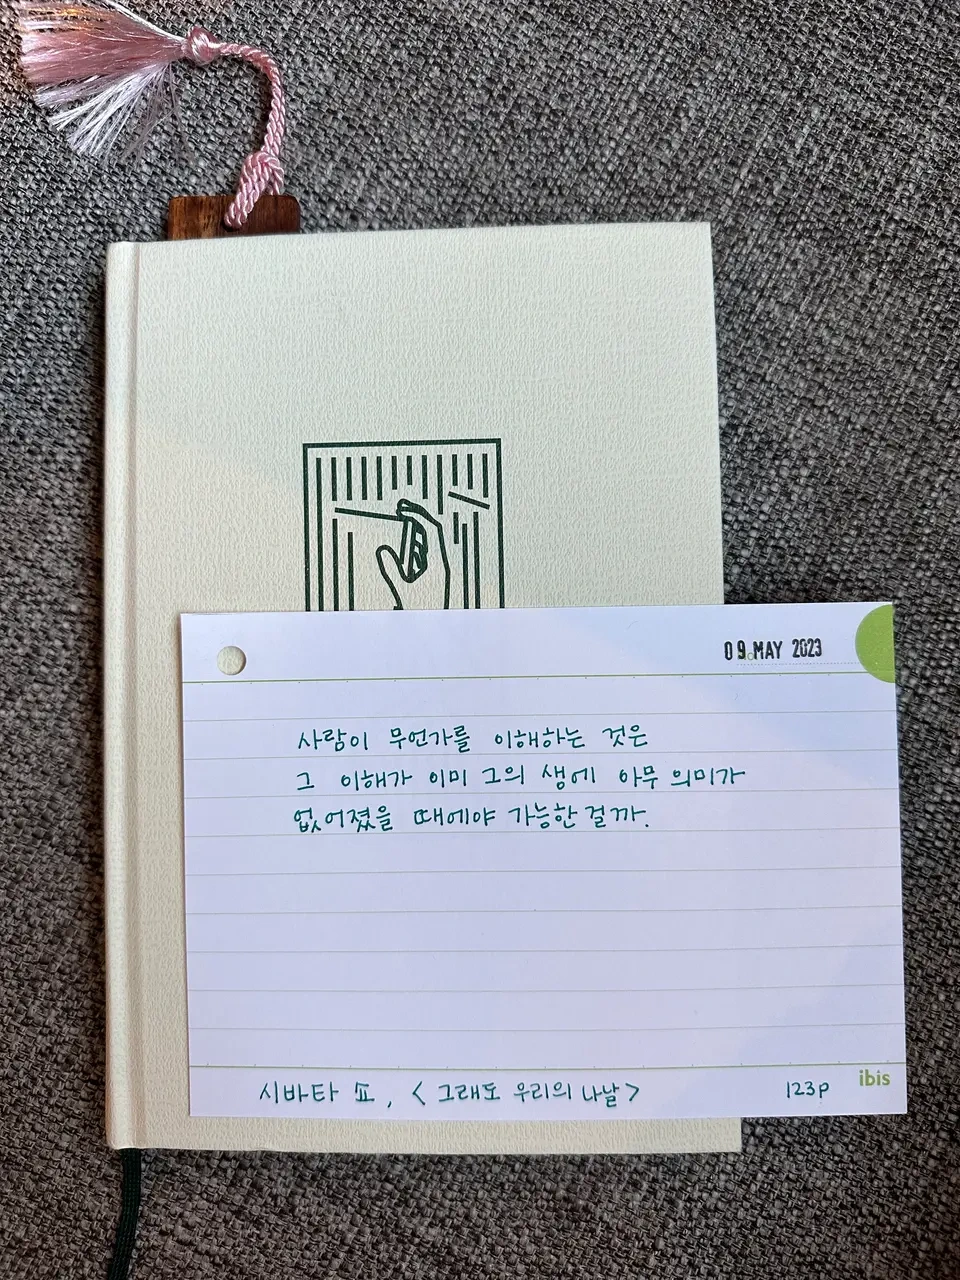 09 MAY 2023
사람이 무언가를 이해하는 것은
그 이해가 이미 그의 생에 아무 의미가
없어졌을 때에야 가능한 걸까.
시바타 쇼, < 그래도 우리의 나날 >
123p
ibis